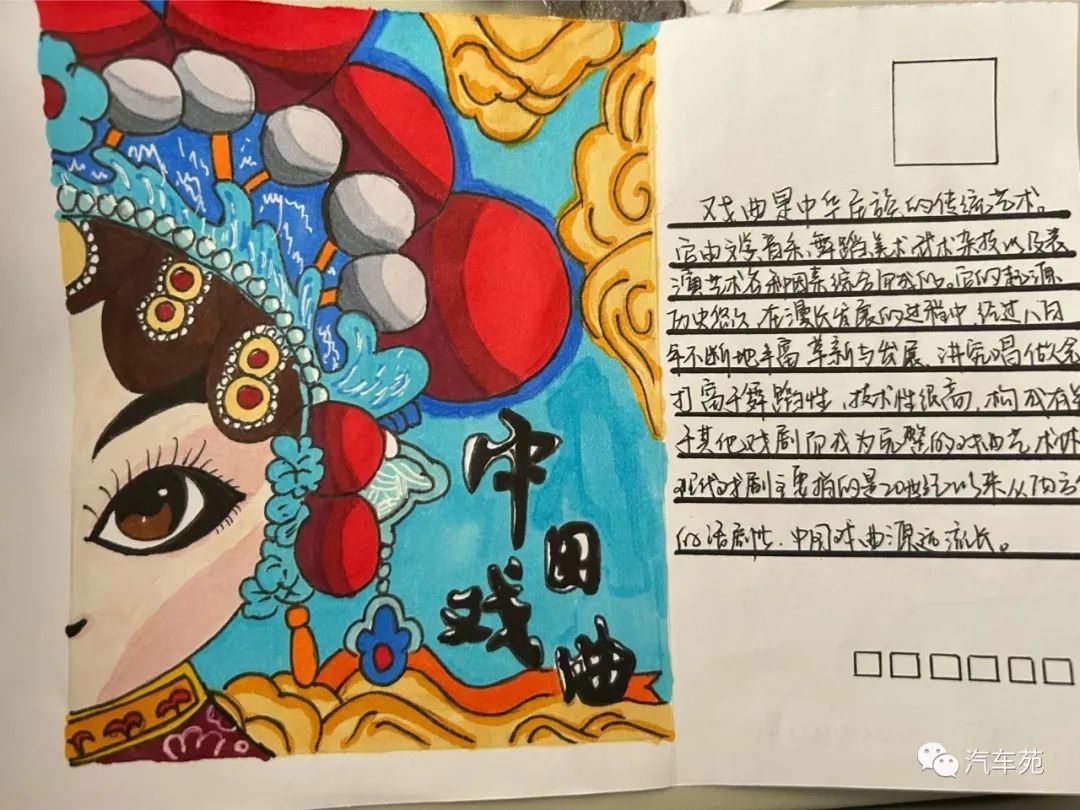 中国
戏曲
戏曲是中华民族的传统艺术。
它由文学音乐、舞蹈美术武术杂技以及表
演艺术各种因素综合而成的。它的起源
历史悠久,在漫长发展的过程中,经过八百
年不断地丰富革新与发展,讲究唱做念
打富于舞蹈性,技术性很高,构成有
于其他戏剧而成为完整的戏曲艺术体
现代戏剧主要指的是20世纪以来从西方
的话剧性,中国戏曲源远流长。
汽车苑